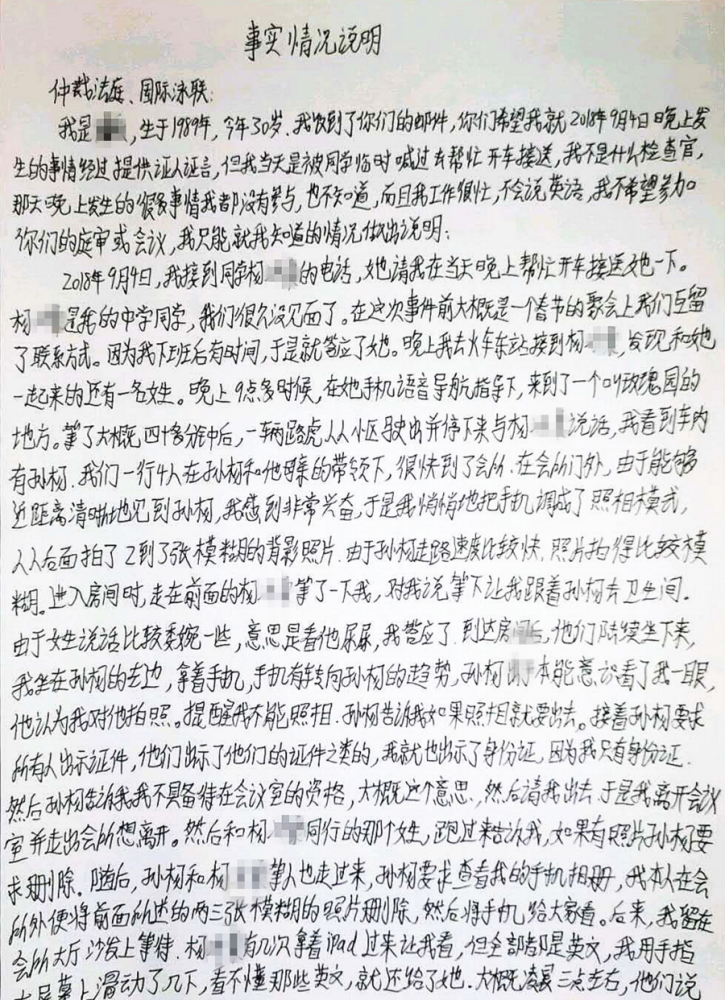 事实情况说明
仲裁法庭、国际泳联:
我是，生于1989年，今年30岁.我收到了你们的邮件，你们希望我就2018年9月4日晚上发
生的事情经过提供证人证言，但我当天是被同学临时喊过去帮忙开车接送，我不是什么检查官，
那天晚上发生的很多事情我都没有参与，也不知道，而且我工作很忙，不会说英语，我不希望参加
你们的庭审或会议，我只能就我知道的情况做出说明：
2018年9月4日，我接到同学杨的电话，她请我在当天晚上帮忙开车接送她一下。
杨是我的中学同学，我们很久没见面了。在这次事件前大概是一个春节的聚会上我们互留
了联系方式。因为我下班后有时间，于是就答应了她。晚上我去火车东站接到杨，发现和她
一起来的还有一名女性。晚上9点多时候，在她手机语音导航指导下，来到了一个叫玫瑰园的
地方。等了大概四十多分钟后，一辆路虎从小区驶出并停下来与杨说话，我看到车内
有孙杨.我们一行4人在孙杨和他母亲的带领下，很快到了会所.在会所门外，由于能够
近距离清晰地见到孙杨，我感到非常兴奋，于是我悄悄地把手机调成了照相模式，
从后面拍了2到了张模糊的背影照片.由于孙杨走路速度比较快，照片拍得比较模
糊。进入房间时，走在前面的杨等了一下我，对我说等下让我跟着孙杨去卫生间。
由于女生说话比较委婉一些，意思是看他尿尿，我答应了.到达房间后，他们陆续坐下来，
我坐在孙杨的左边，拿着手机，手机有转向孙杨的趋势，孙杨本能意识看了我一眼，
他认为我对他拍照。提醒我不能照相.孙杨告诉我如果照相就要出去。接着孙杨要求
所有人出示证件，他们出示了他们的证件之类的，我就也出示了身份证，因为我只有身份证.
然后孙杨告诉我我不具备待在会议室的资格，大概这个意思，然后请我出去.于是我离开会议
室并走出会所想离开。然后和杨同行的那个女生，跑过来告诉我，如果有照片孙杨要
求删除.随后，孙杨和杨等人也走过来，孙杨要求查看我的手机相册，我本人在会
所外便将前面所述的两三张模糊的照片删除，然后将手机给大家看。后来，我留在
会所大厅沙发上等待.杨有几次拿着ipad过来让我看，但全部都是英文，我用手指
在屏幕上滑动了几下，看不懂那些英文，就还给了她.大概凌晨三点左右，他们说